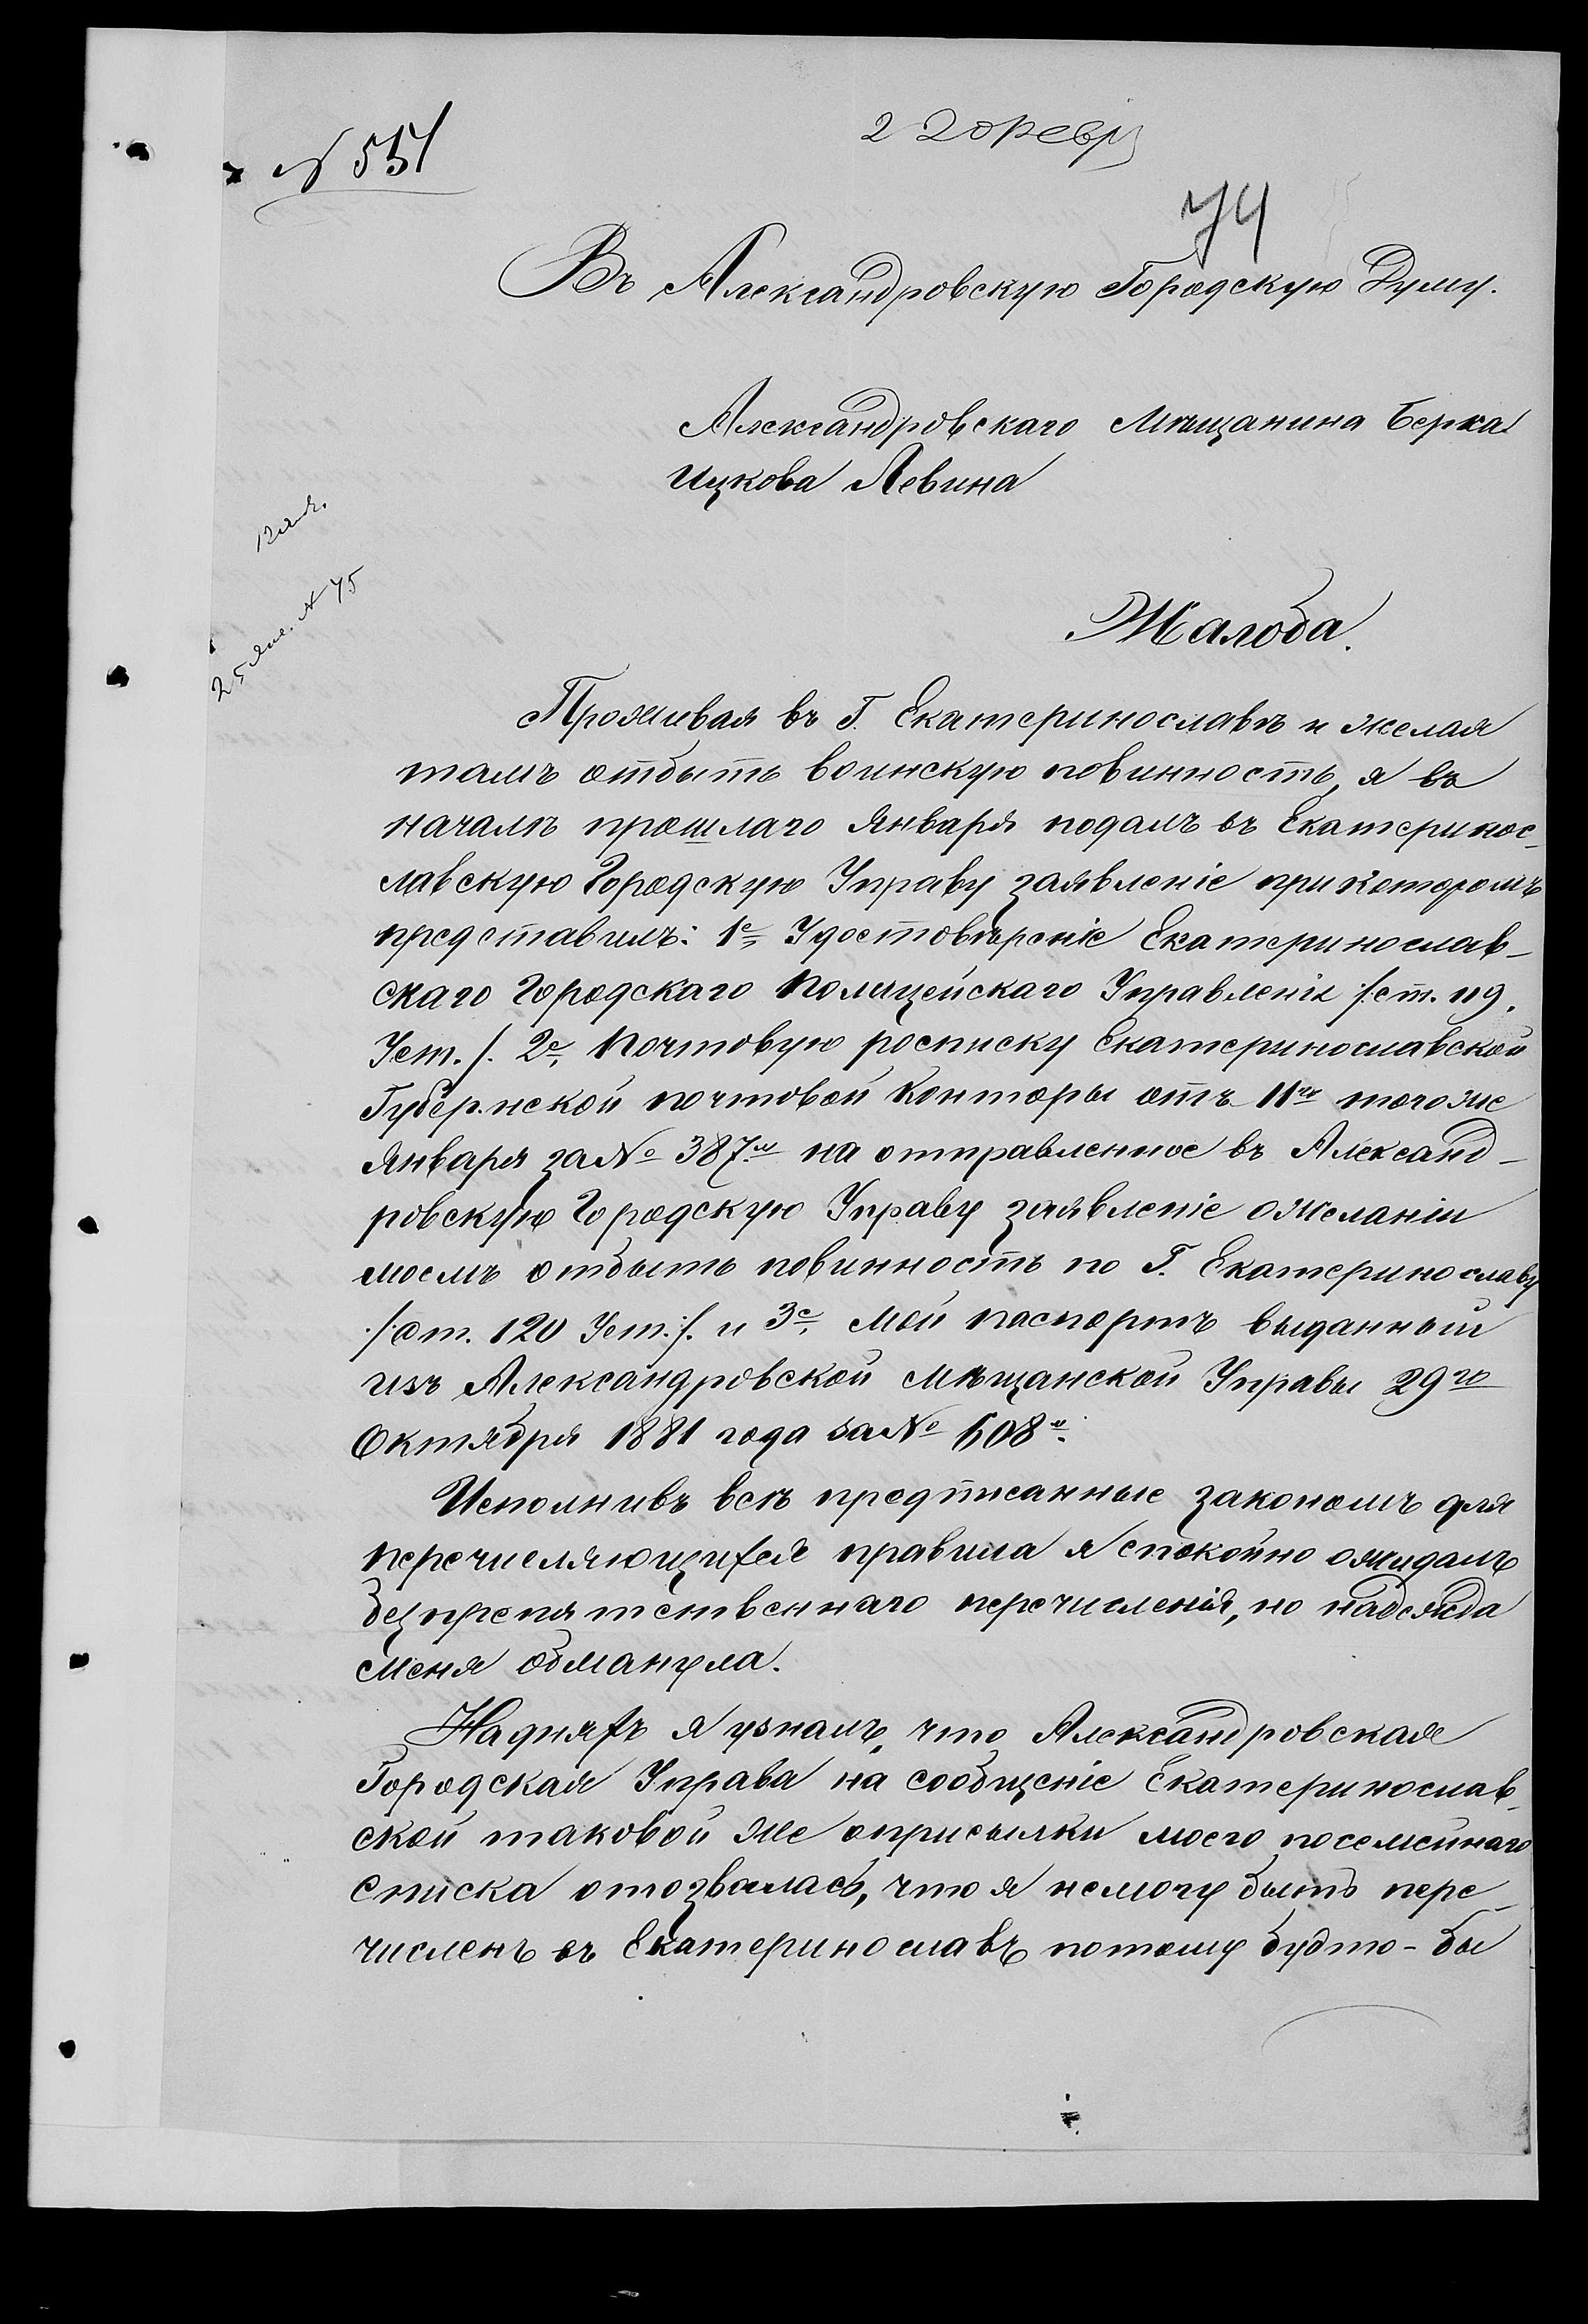 № 551
2 Февр
74
Въ Александровскую Городскую Думу.
Александровскаго Мѣщанина Берка
Ицкова Левина
25 Янв. № 75
Жалоба.
Проживая въ Г. Екатеринославѣ и желая
тамъ отбыть воинскую повинность, я въ
началѣ прошлаго Января подалъ въ Екатеринос-
лавскую Городскую Управу заявленіе при которомъ
представилъ: 1е, Удостовѣреніе Екатеринослав-
скаго Городскаго Полицейскаго Управленія /:ст. 119.
Уст./. 2е, Почтовую росписку Екатеринославской
Губернской почтовой Конторы отъ 11го того же
Января за № 387м на отправленное въ Александ-
ровскую Городскую Управу заявленіе о желаніи
моемъ отбыть повинность по Г. Екатеринославу
/:ст. 120 Уст:/. и 3е, Мой паспортъ выданный
изъ Александровской Мѣщанской Управы 29го
Октября 1881 года за № 608м.
Исполнивъ всѣ предписанные закономъ для
перечисляющихся правила я спокойно ожидалъ
безпрепятственнаго перечисленія, но надежда
меня обманула.
На дняхъ я узналъ, что Александровская
Городская Управа на сообщеніе Екатеринослав-
ской таковой же о присылки моего посемейнаго
списка отозвалась, что я не могу быть пере-
численъ въ Екатеринославъ потому будто-бы